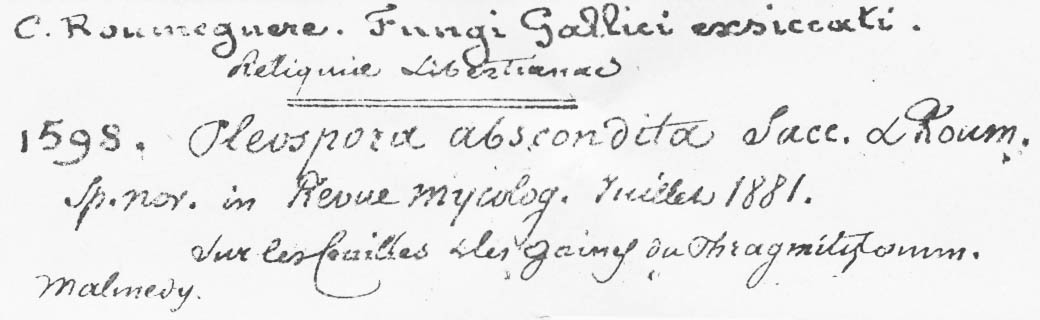 C. Roumeguere. Fungi Gallici exsiccati.
Reliquiæ Libertianae
1598. Pleospora abscondita Sacc. & Roum.
Sp. nov. in Revue mycolog. Juillet 1881.
Sur les feuilles & les gaines du Phragmitis comm.
Malmedy.